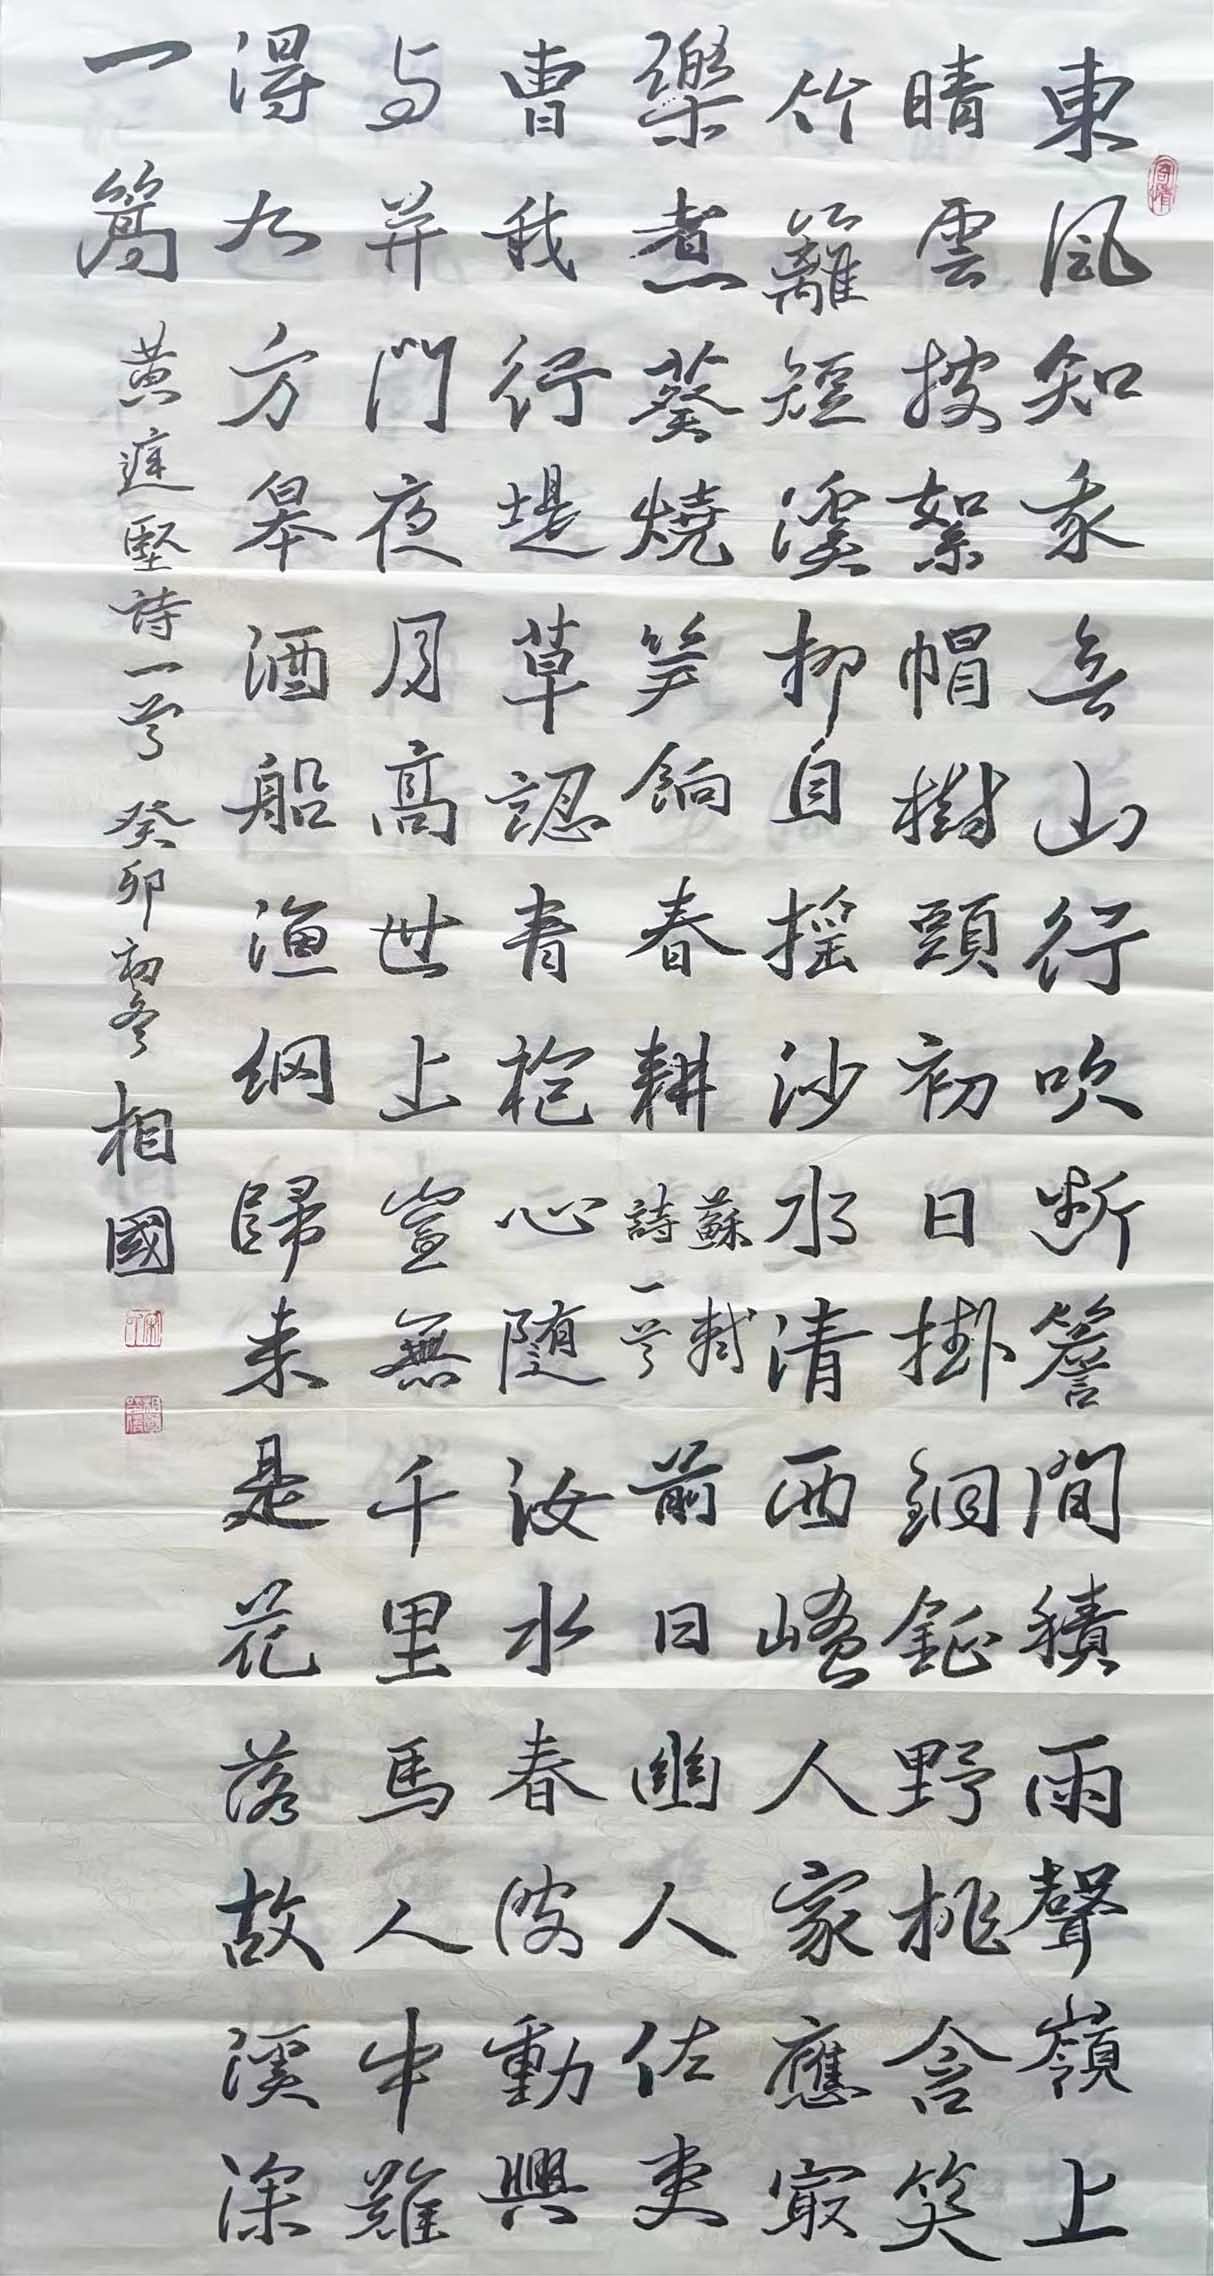 東風知我欲山行吹斷簷間積雨聲嶺上
晴雲披絮帽樹頭初日掛銅鉦野桃含笑
竹籬短溪柳自搖沙水清西崦人家應最
樂煮葵燒筍餉春耕蘇軾詩一首前日幽人佐吏
曹我行堤草認青袍心隨汝水春波動興
与并門夜月高世上豈無千里馬人中難
得九方皋酒船漁網歸来是花落故溪深
一篙 黃庭堅詩一首 癸卯初冬 相國